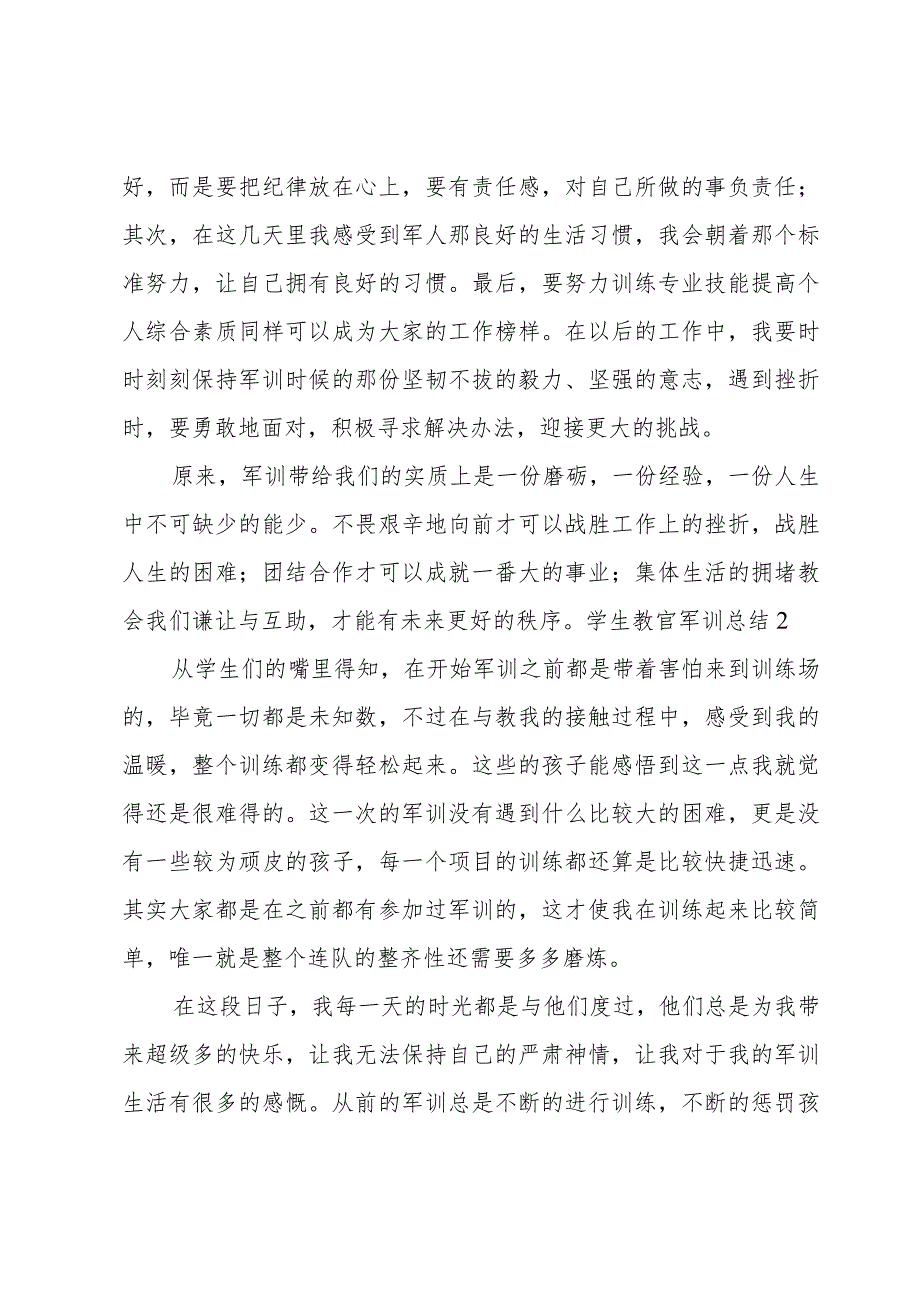 好，而是要把纪律放在心上，要有责任感，对自己所做的事负责任；
其次，在这几天里我感受到军人那良好的生活习惯，我会朝着那个标
准努力，让自己拥有良好的习惯。最后，要努力训练专业技能提高个
人综合素质同样可以成为大家的工作榜样。在以后的工作中，我要时
时刻刻保持军训时候的那份坚韧不拔的毅力、坚强的意志，遇到挫折
时，要勇敢地面对，积极寻求解决办法，迎接更大的挑战。
原来，军训带给我们的实质上是一份磨砺，一份经验，一份人生
中不可缺少的能少。不畏艰辛地向前才可以战胜工作上的挫折，战胜
人生的困难；团结合作才可以成就一番大的事业；集体生活的拥堵教
会我们谦让与互助，才能有未来更好的秩序。学生教官军训总结 2
从学生们的嘴里得知，在开始军训之前都是带着害怕来到训练场
的，毕竟一切都是未知数，不过在与教我的接触过程中，感受到我的
温暖，整个训练都变得轻松起来。这些的孩子能感悟到这一点我就觉
得还是很难得的。这一次的军训没有遇到什么比较大的困难，更是没
有一些较为顽皮的孩子，每一个项目的训练都还算是比较快捷迅速。
其实大家都是在之前都有参加过军训的，这才使我在训练起来比较简
单，唯一就是整个连队的整齐性还需要多多磨炼。
在这段日子，我每一天的时光都是与他们度过，他们总是为我带
来超级多的快乐，让我无法保持自己的严肃神情，让我对于我的军训
生活有很多的感慨。从前的军训总是不断的进行训练，不断的惩罚孩